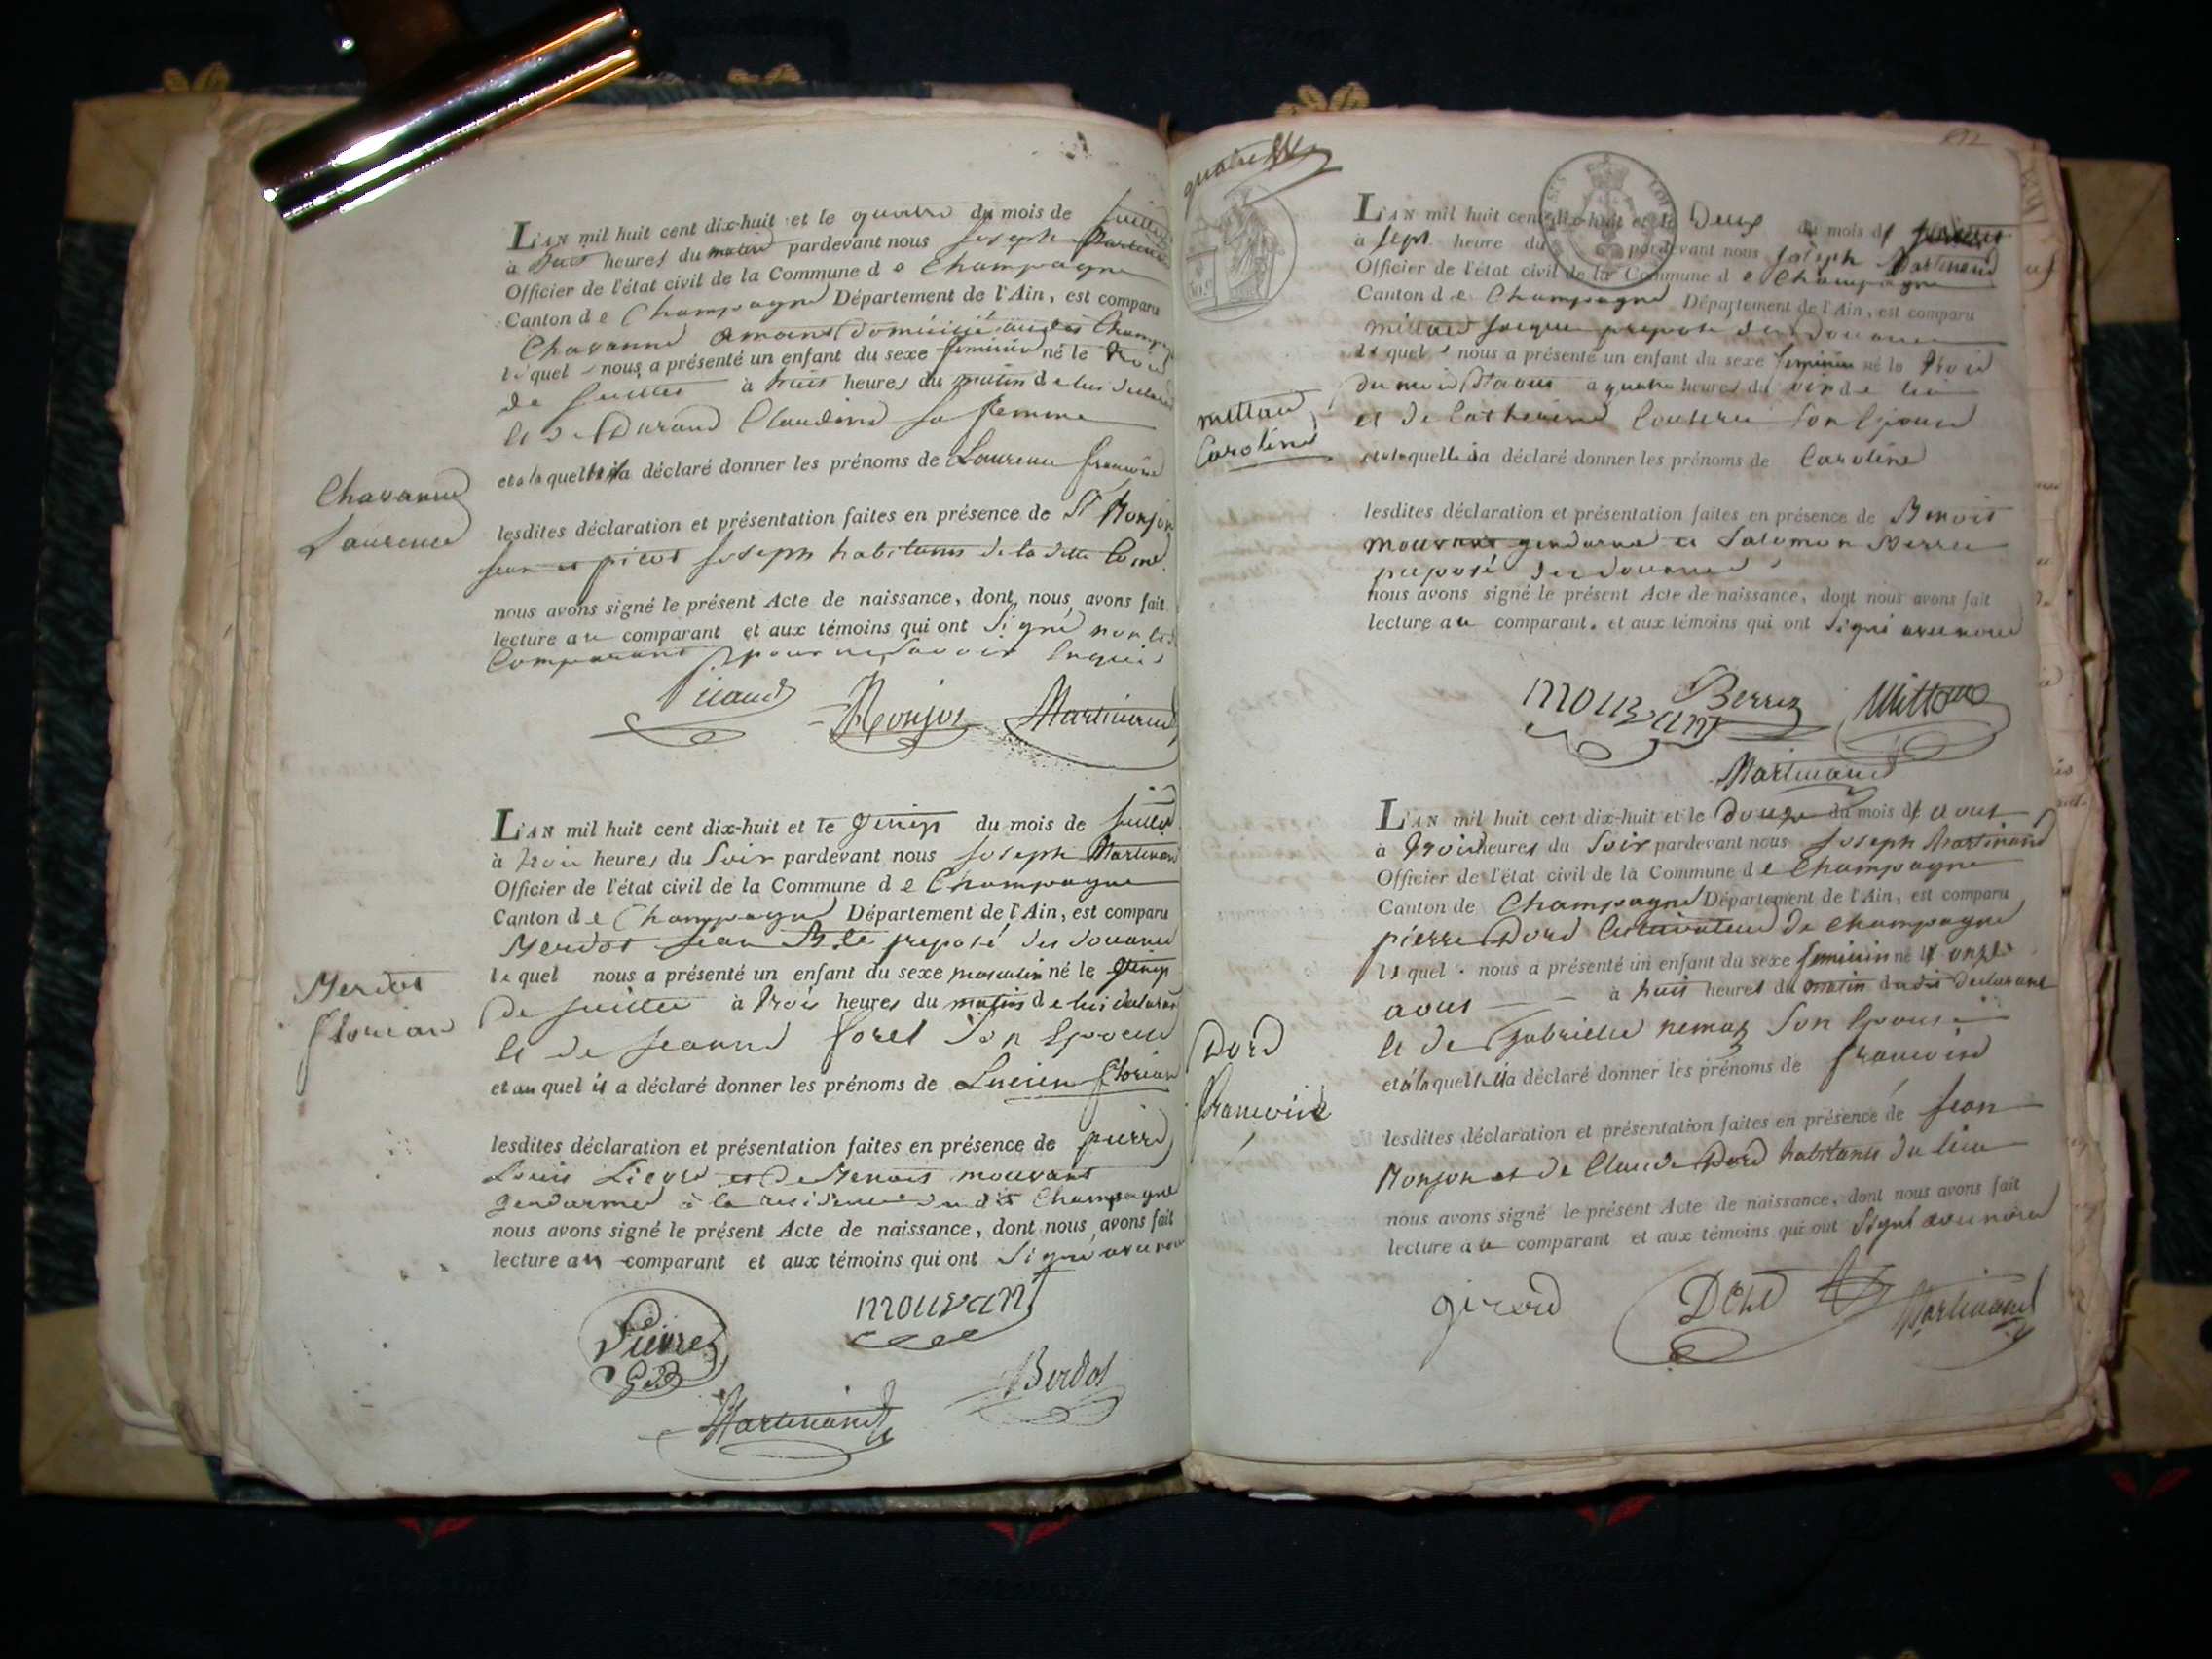 L'AN mil huit cent dix-huit et le quatre du mois de juillet
à huit heures du matin pardevant nous joseph Martinand
Officier de l'état civil de la Commune d e Champagne
Canton d e Champagne Département de l'Ain, est comparu
Chavanne domicilié
lequel nous a présenté un enfant du sexe feminin né le trois
de juillet à huit heures du matin de lui declarant
et de Durand Claudine sa femme
et a la quelle il a déclaré donner les prénoms de Laurence françoise
Chavanne
Laurence
lesdites déclaration et présentation faites en présence de Monjon
jean et joseph habitants de la ditte
nous avons signé le présent Acte de naissance, dont nous avons fait
lecture au comparant et aux témoins qui ont signé non le
Comparant pour ne savoir
Picaud Monjon Martinand
L'AN mil huit cent dix-huit et le quinze du mois de juillet
à trois heures du soir pardevant nous joseph Martinand
Officier de l'état civil de la Commune d e Champagne
Canton d e Champagne Département de l'Ain, est comparu
Berdot jean preposé des douanes
le quel nous a présenté un enfant du sexe masculin né le quinze
de juillet à trois heures du matin de lui declarant
et de jeanne forel son epouse
et au quel il a déclaré donner les prénoms de Lucien florian
Berdot
florian
lesdites déclaration et présentation faites en présence de pierre
Louis Lievre et de Benoit mouvant
gendarmes à la residence du dit Champagne
nous avons signé le présent Acte de naissance, dont nous avons fait
lecture au comparant et aux témoins qui ont signé avec nous
mouvant
Lievre
Berdot
Martinand
L'AN mil huit cent dix-huit et le Deux du mois d
à sept heure du pardevant nous joseph Martinand
Officier de l'état civil de la Commune d e Champagne
Canton d e Champagne Département de l'Ain, est comparu
millaud jacques preposé des douanes
lequel nous a présenté un enfant du sexe feminin né le trois
du mois à quatre heures du de lui
et de Catherine son Epouse
millaud
Caroline
et a la quelle il a déclaré donner les prénoms de Caroline
lesdites déclaration et présentation faites en présence de Benoit
mouvant gendarme et Salomon Berru
preposé des douanes
nous avons signé le présent Acte de naissance, dont nous avons fait
lecture au comparant. et aux témoins qui ont signé avec nous
mouvant Millaud
Martinand
L'AN mil huit cent dix-huit et le douze du mois d'aout
à trois heures du soir pardevant nous joseph Martinand
Officier de l'état civil de la Commune d e Champagne
Canton de Champagne Département de l'Ain, est comparu
pierre Dord Cultivateur de champagne
lequel nous a présenté un enfant du sexe feminin né le onze
aout à huit heures du matin dudit declarant
et de gabrielle nemoz son epouse
et à la quelle il a déclaré donner les prénoms de françoise
Dord
françoise
lesdites déclaration et présentation faites en présence de jean
Monjon et de Claude Dord habitants du lieu
nous avons signé le présent Acte de naissance, dont nous avons fait
lecture au comparant et aux témoins qui ont signé avec nous
girord Dord Martinand